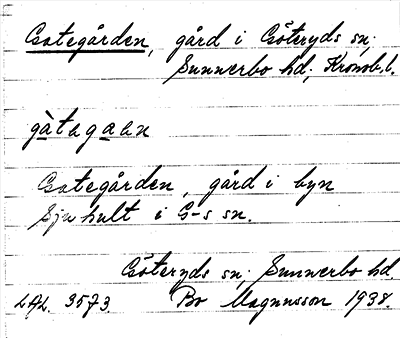 Gategården, gård i Göteryds sn;
Sunnerbo hd; Kronob. l.
gàtagaan
Gategården, gård i byn
Sjuhult i G-s sn.
Göteryds sn; Sunnerbo hd
LAL. 3573. Bo Magnusson 1938.